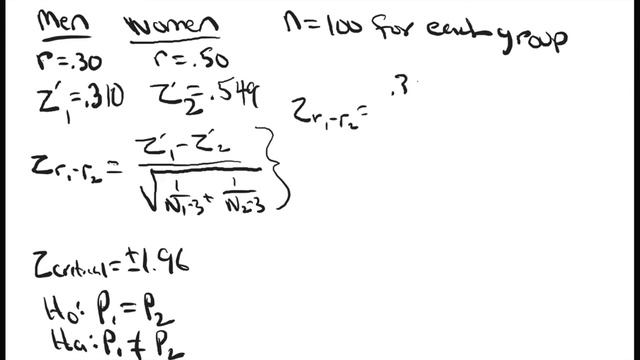 Men Women n=100 for each group
r=.30 r=.50
Z'₁=.310 Z'₂=.549
Z r₁-r₂ = .3
Z r₁-r₂ = Z'₁-Z'₂ / √(1/N₁-3 + 1/N₂-3)
Zcritical=±1.96
Ho: P₁=P₂
Ha: P₁≠P₂